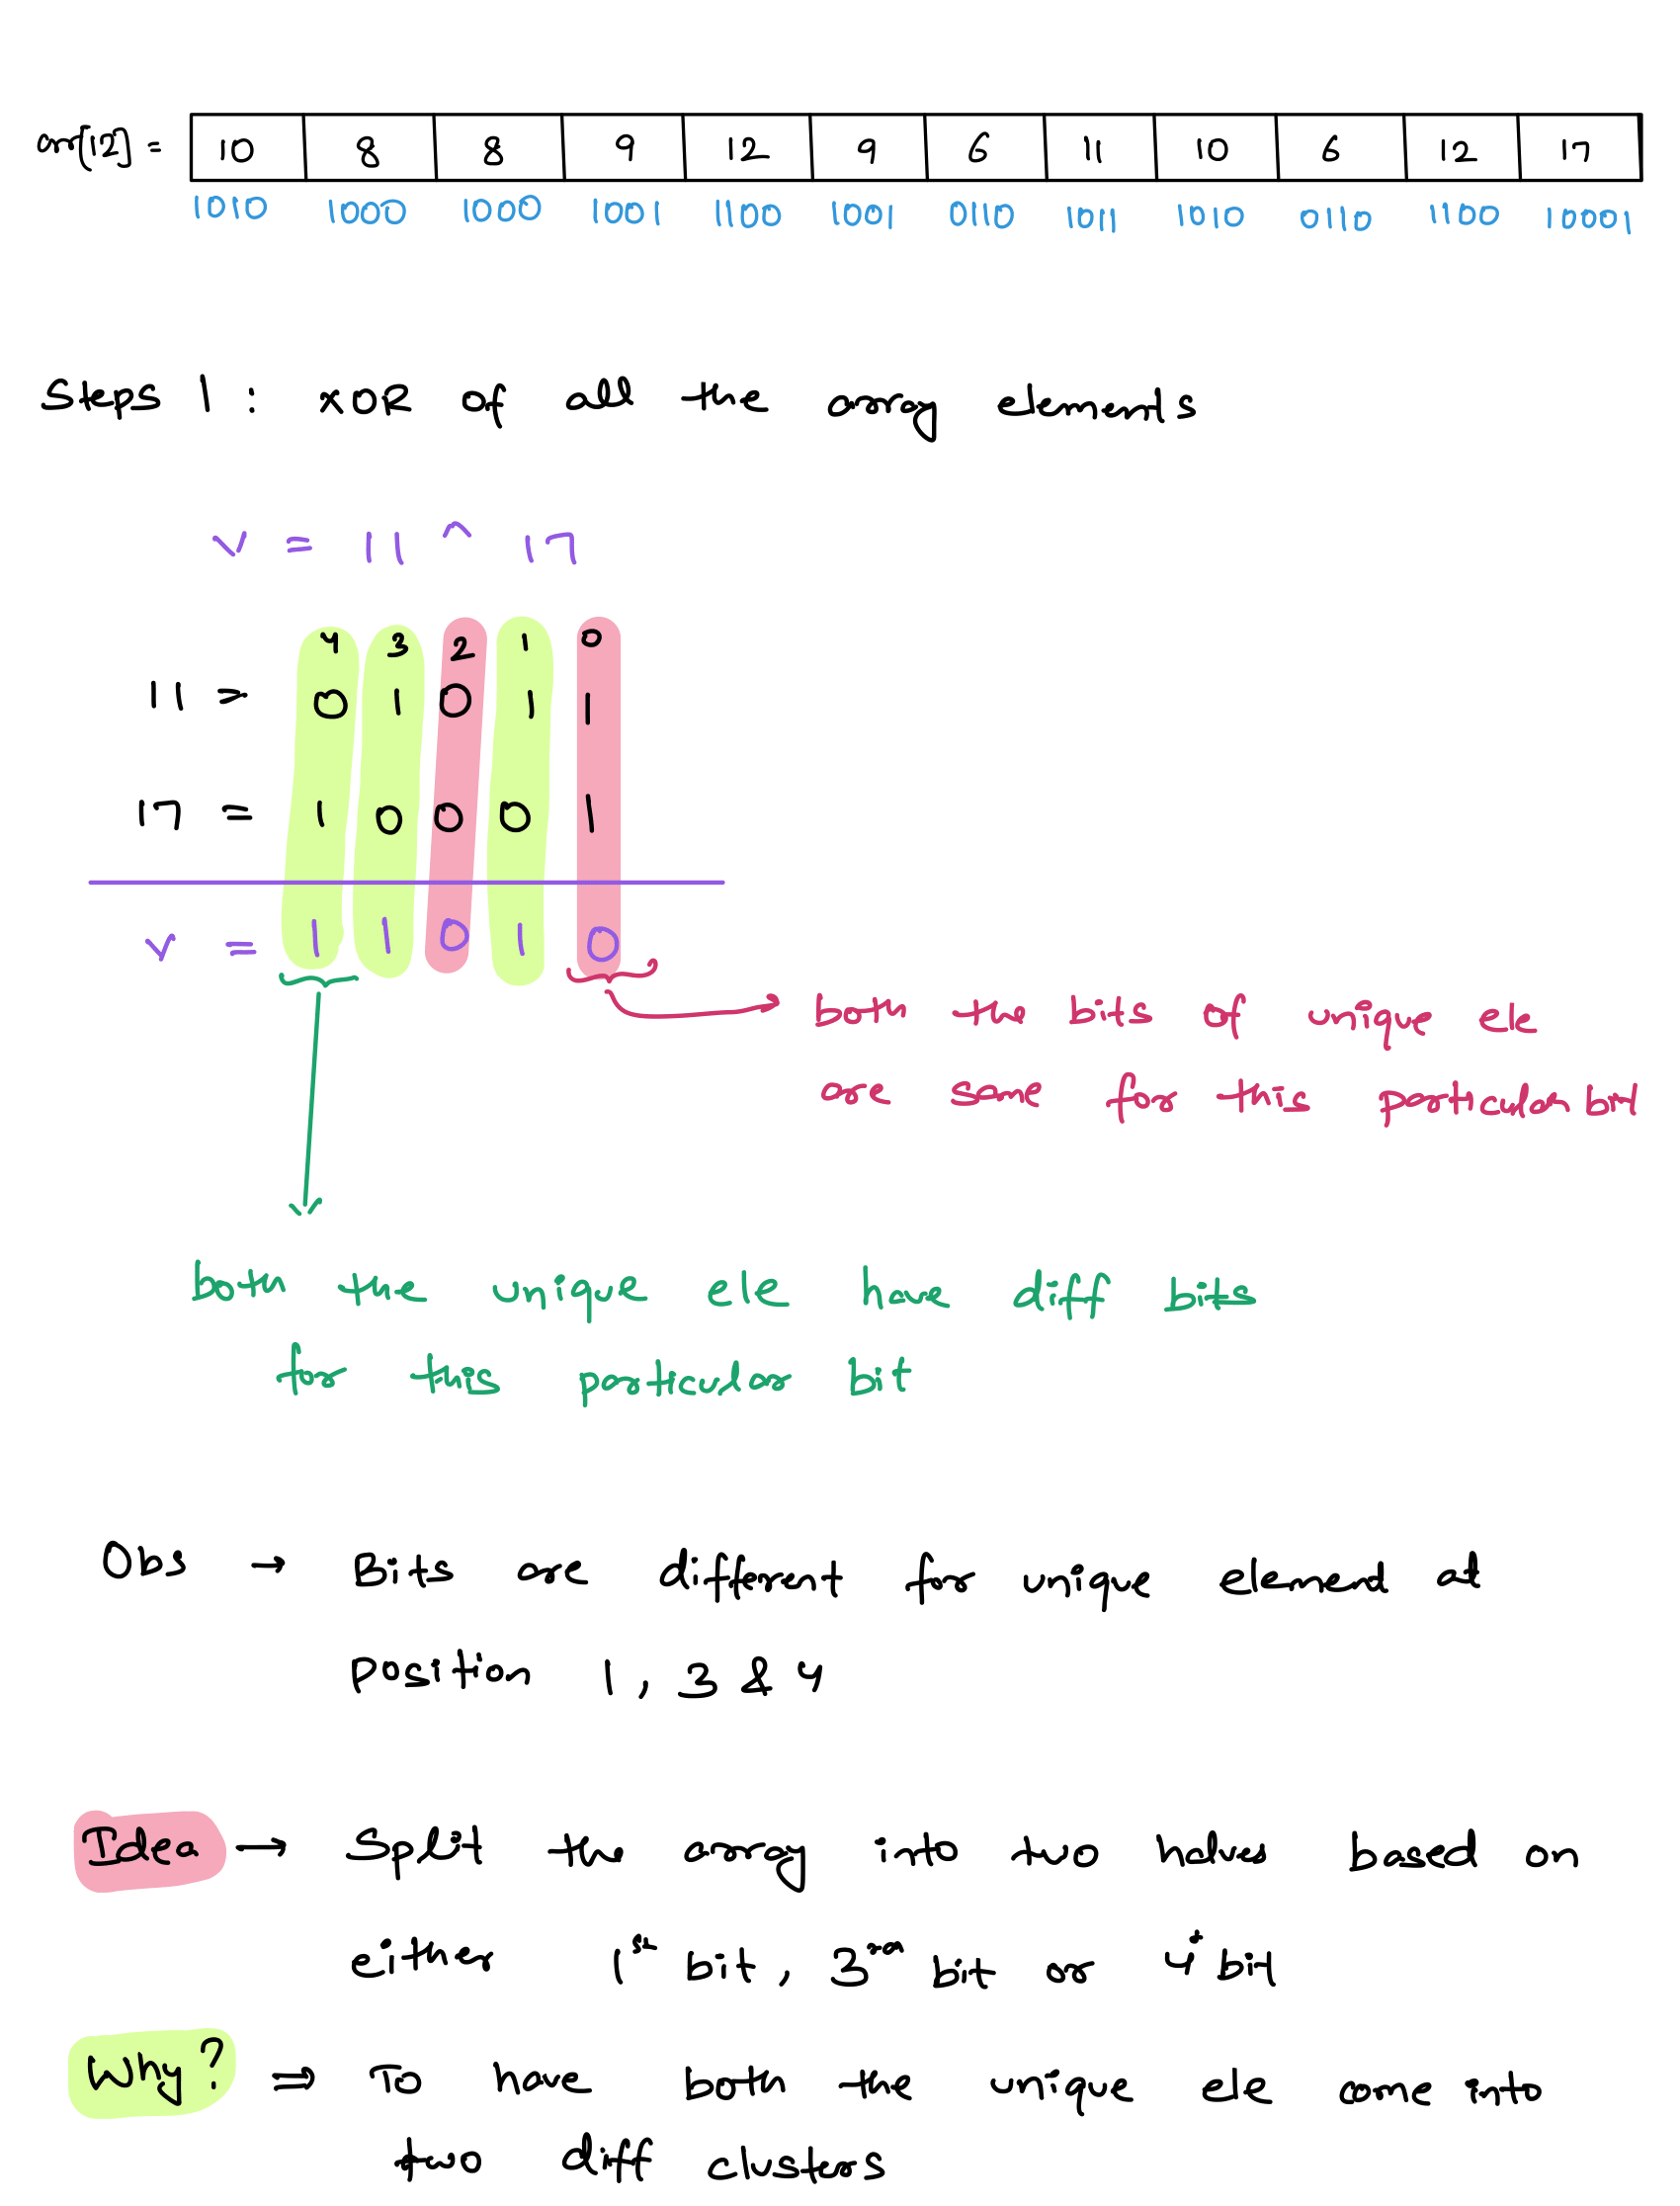 arr[12] = 10 8 8 9 12 9 6 11 10 6 12 17
1010 1000 1000 1001 1100 1001 0110 1011 1010 0110 1100 10001
Steps 1 : XOR of all the array elements
v = 11 ^ 17
4 3 2 1 0
11 = 0 1 0 1 1
17 = 1 0 0 0 1
v = 1 1 0 1 0
both the bits of unique ele
are same for this particular bit
both the unique ele have diff bits
for this particular bit
Obs → Bits are different for unique element at
position 1, 3 & 4
Idea → Split the array into two halves based on
either 1st bit, 3rd bit or 4t bit
Why? ⇒ To have both the unique ele come into
two diff clusters